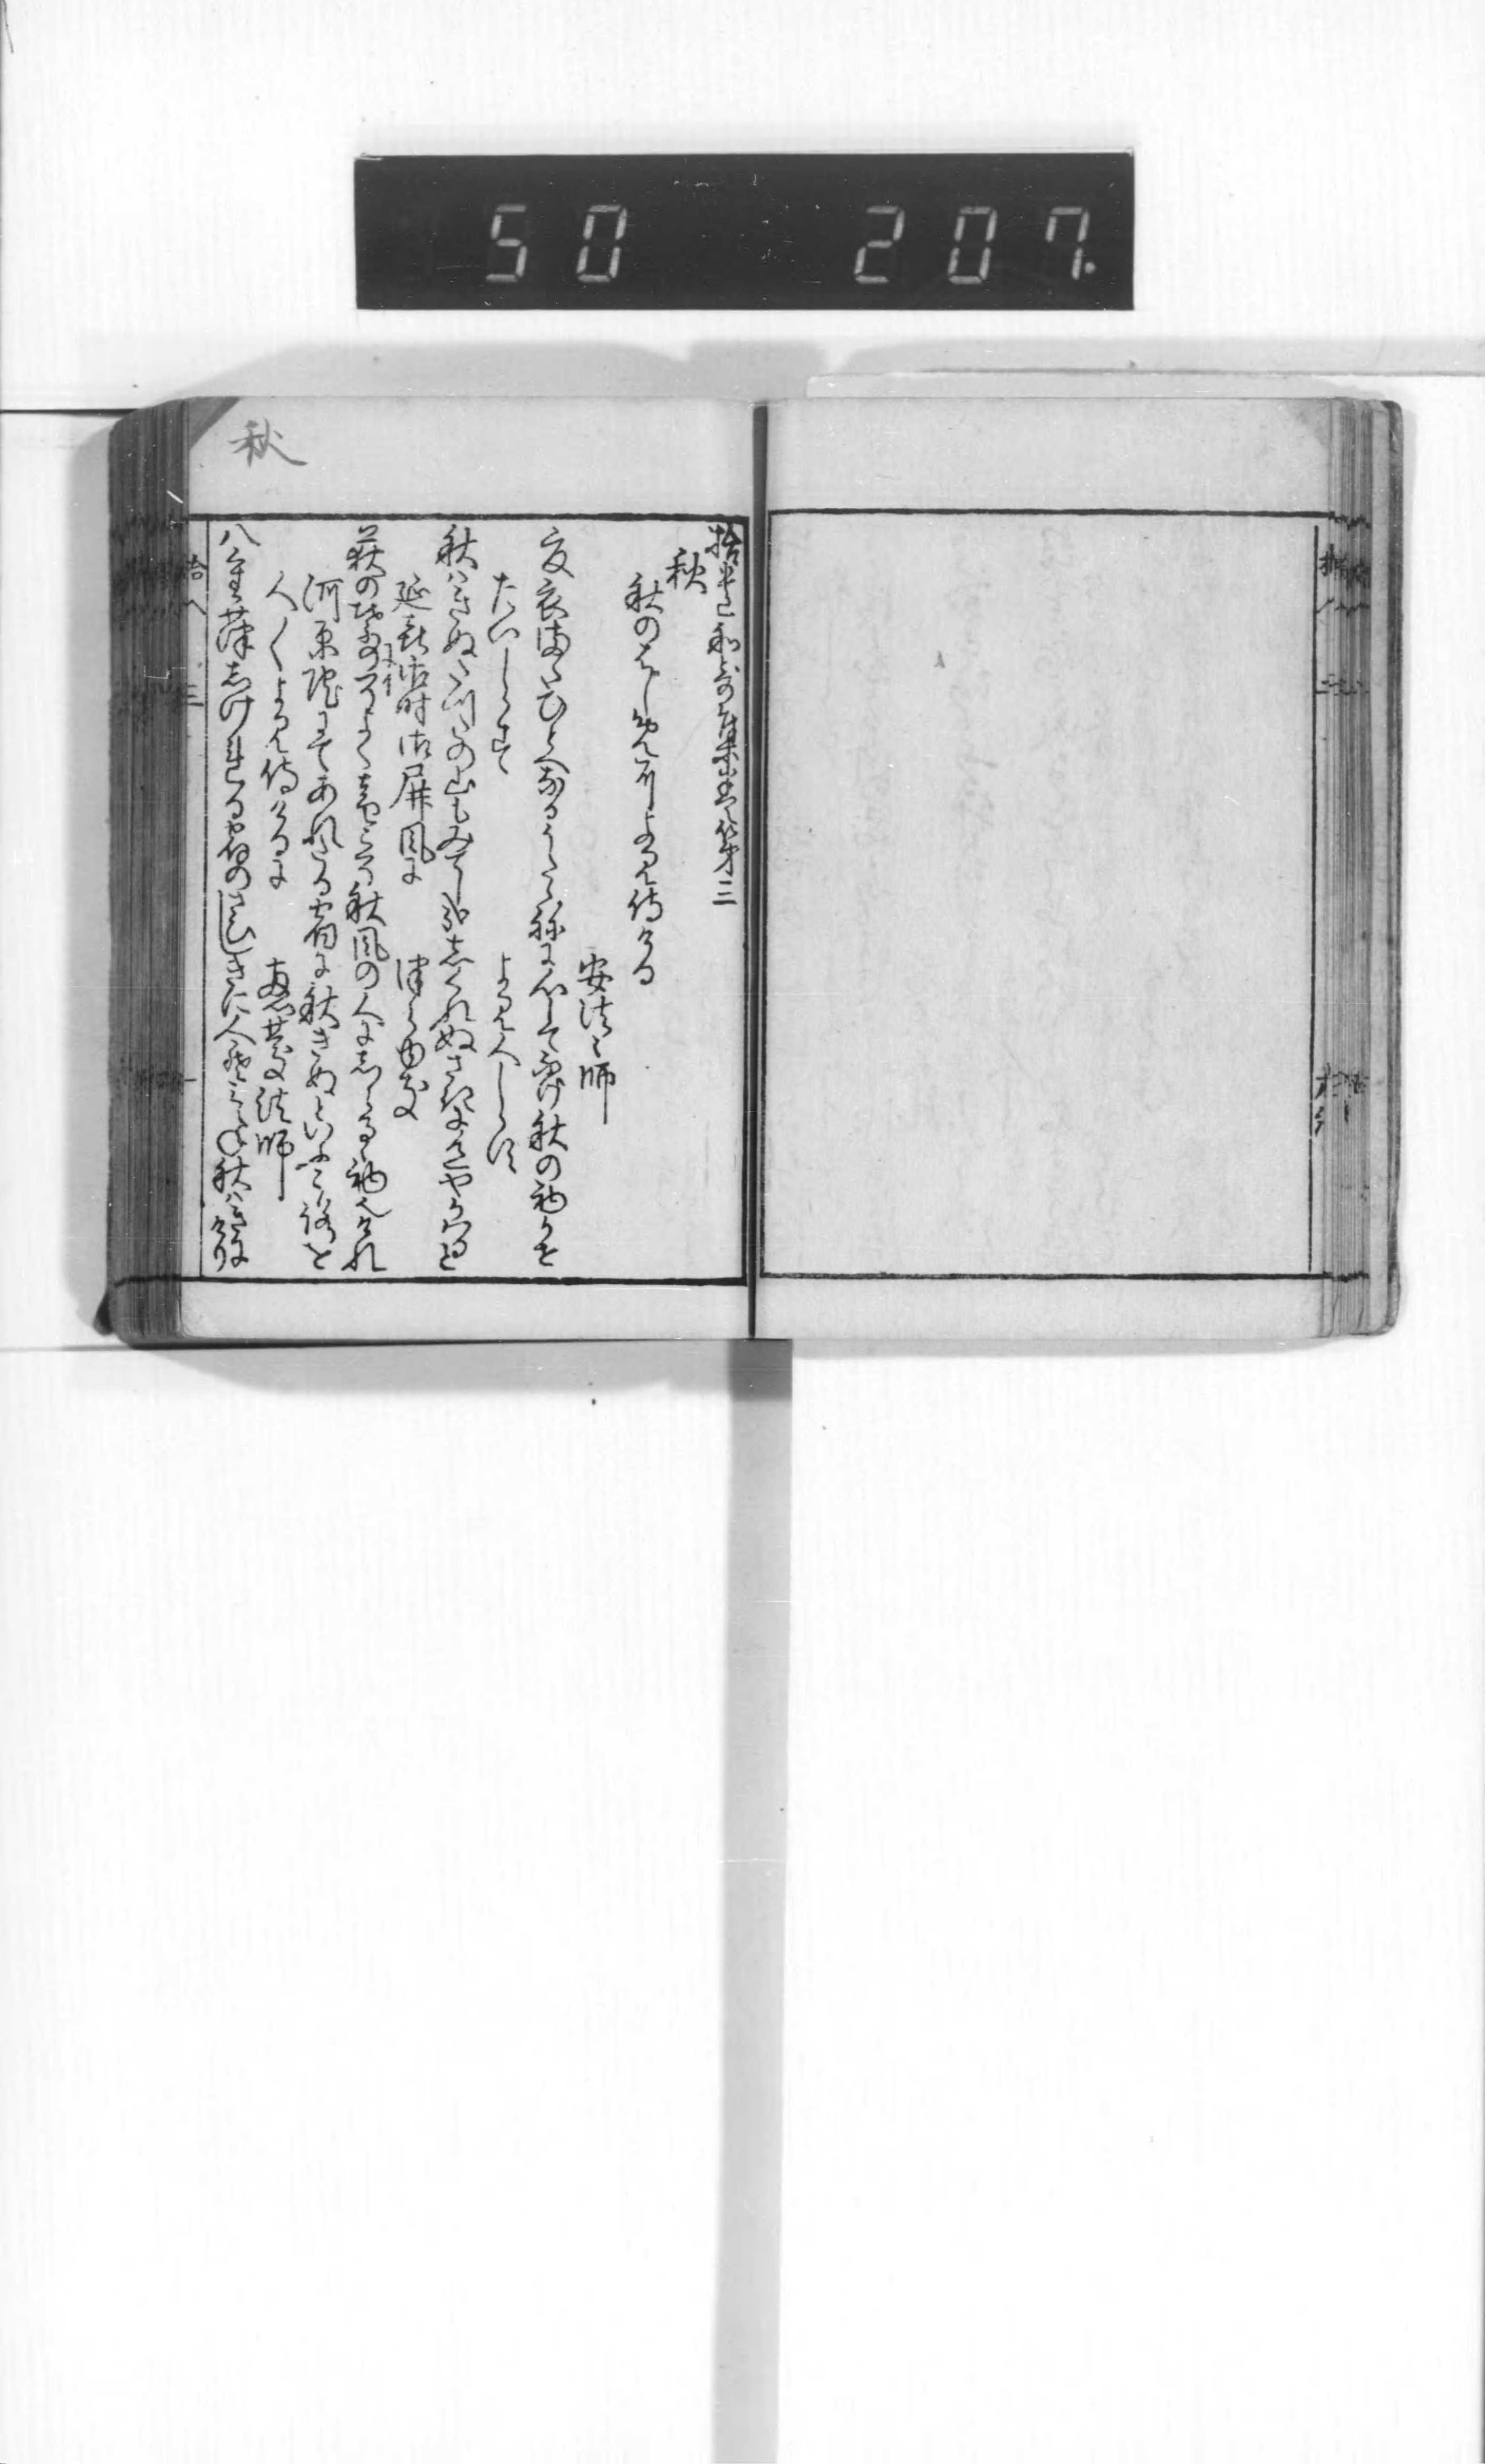 50 207.
秋
拾遺和哥集巻第三
秋
秋のはしめによみ侍ける
安法〻師
夏衣またひとへなるうたゝねに心してふけ秋の初かせ
たいしらす
よみ人しらす
秋はきぬたつたの山もみてしかなしくれぬさきに色やかはると
延喜御時御屏風に
つらゆき
荻の葉のそよくをとこそ秋風の人にしらるゝ初なりけれ
河原院にてあれたる宿に秋きぬといふこゝろを
人〱よみ侍けるに
恵慶法師
八重葎しけれる宿のさひしきに人こそみえね秋はきにけり